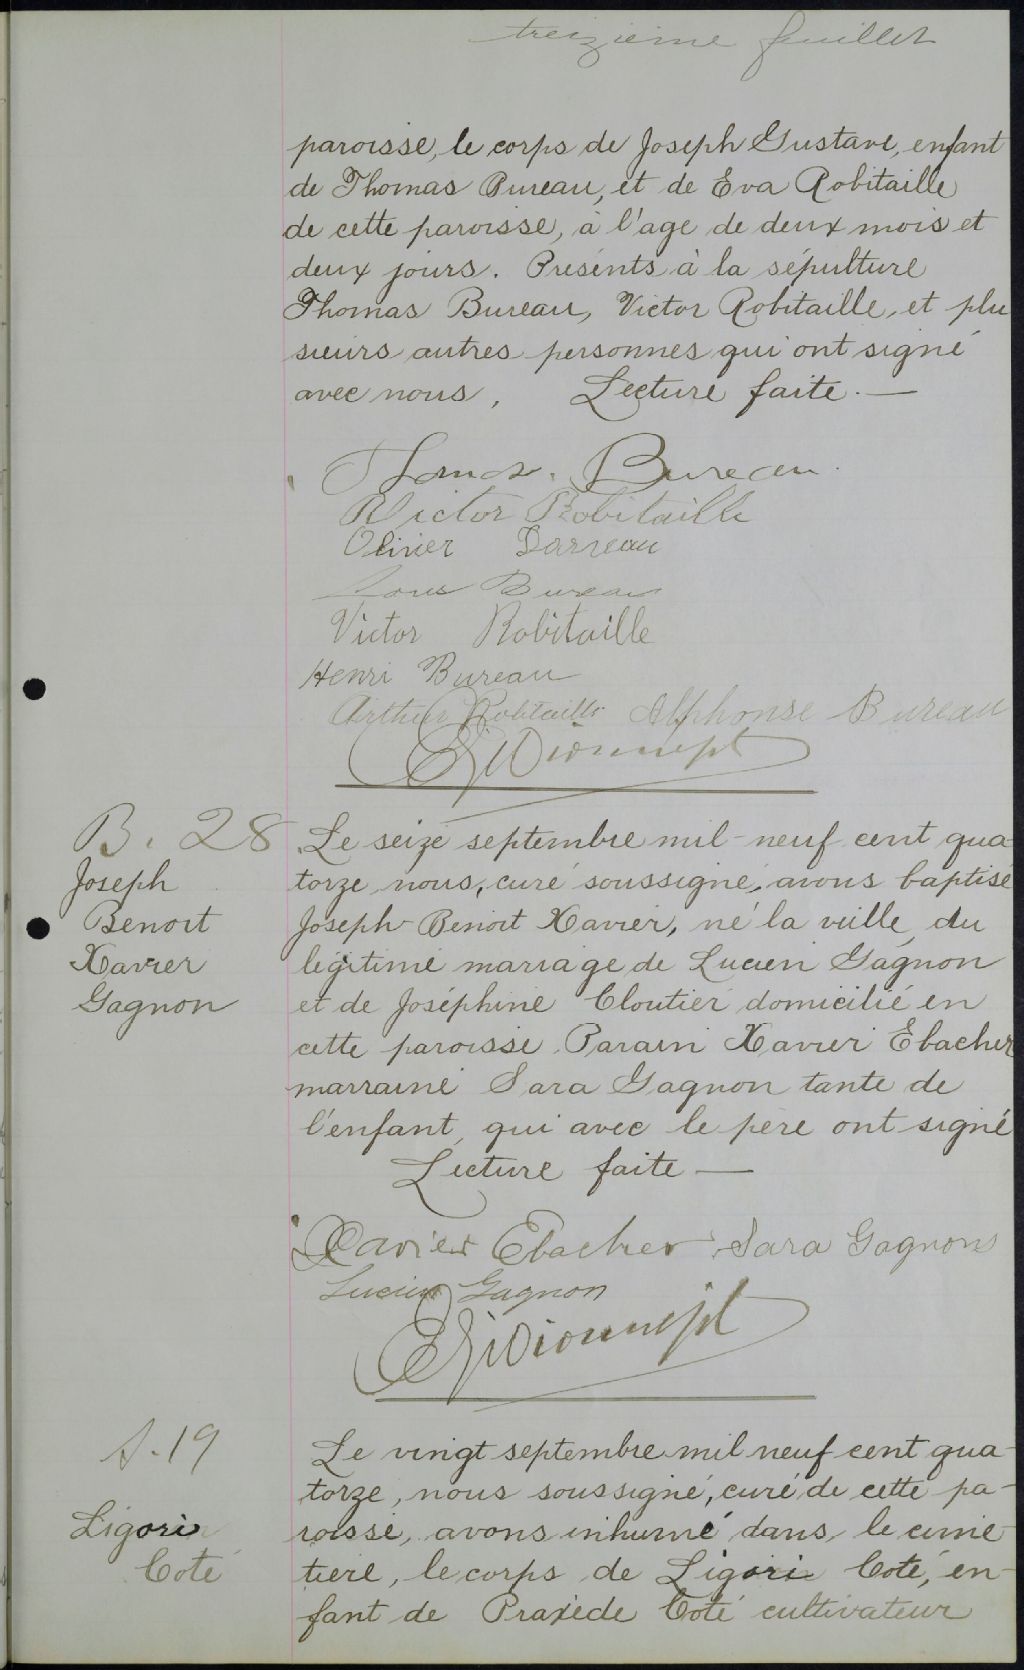 treizième feuillet
paroisse, le corps de Joseph Gustave, enfant
de Thomas Bureau, et de Eva Robitaille
de cette paroisse, à l'age de deux mois et
deux jours. Présents à la sépulture
Thomas Bureau, Victor Robitaille, et plu
sieurs autres personnes qui ont signé
avec nous, Lecture faite. —
Thomas. Bureau.
Victor Robitaille
Olivier Darveau
Bureau
Victor Robitaille
Henri Bureau
Arthur Robitaille Alphonse Bureau
B. 28
Joseph
Benoit
Xavier
Gagnon
Le seize septembre mil-neuf cent qua-
torze, nous, curé soussigné, avons baptisé
Joseph-Benoit Xavier, né la veille, du
légitime mariage de Lucien Gagnon
et de Joséphine Cloutier domicilié en
cette paroisse. Parain Xavier Ebacher
marraine Sara Gagnon tante de
l'enfant, qui avec le père ont signé
Lecture faite —
Xavier Ebacher Sara Gagnons
Lucien Gagnon
S. 19
Ligori
Coté
Le vingt septembre mil neuf cent qua-
torze, nous soussigné, curé de cette pa-
roisse, avons inhumé dans le cime-
tière, le corps de Ligori Coté, en-
fant de Praxède Coté cultivateur